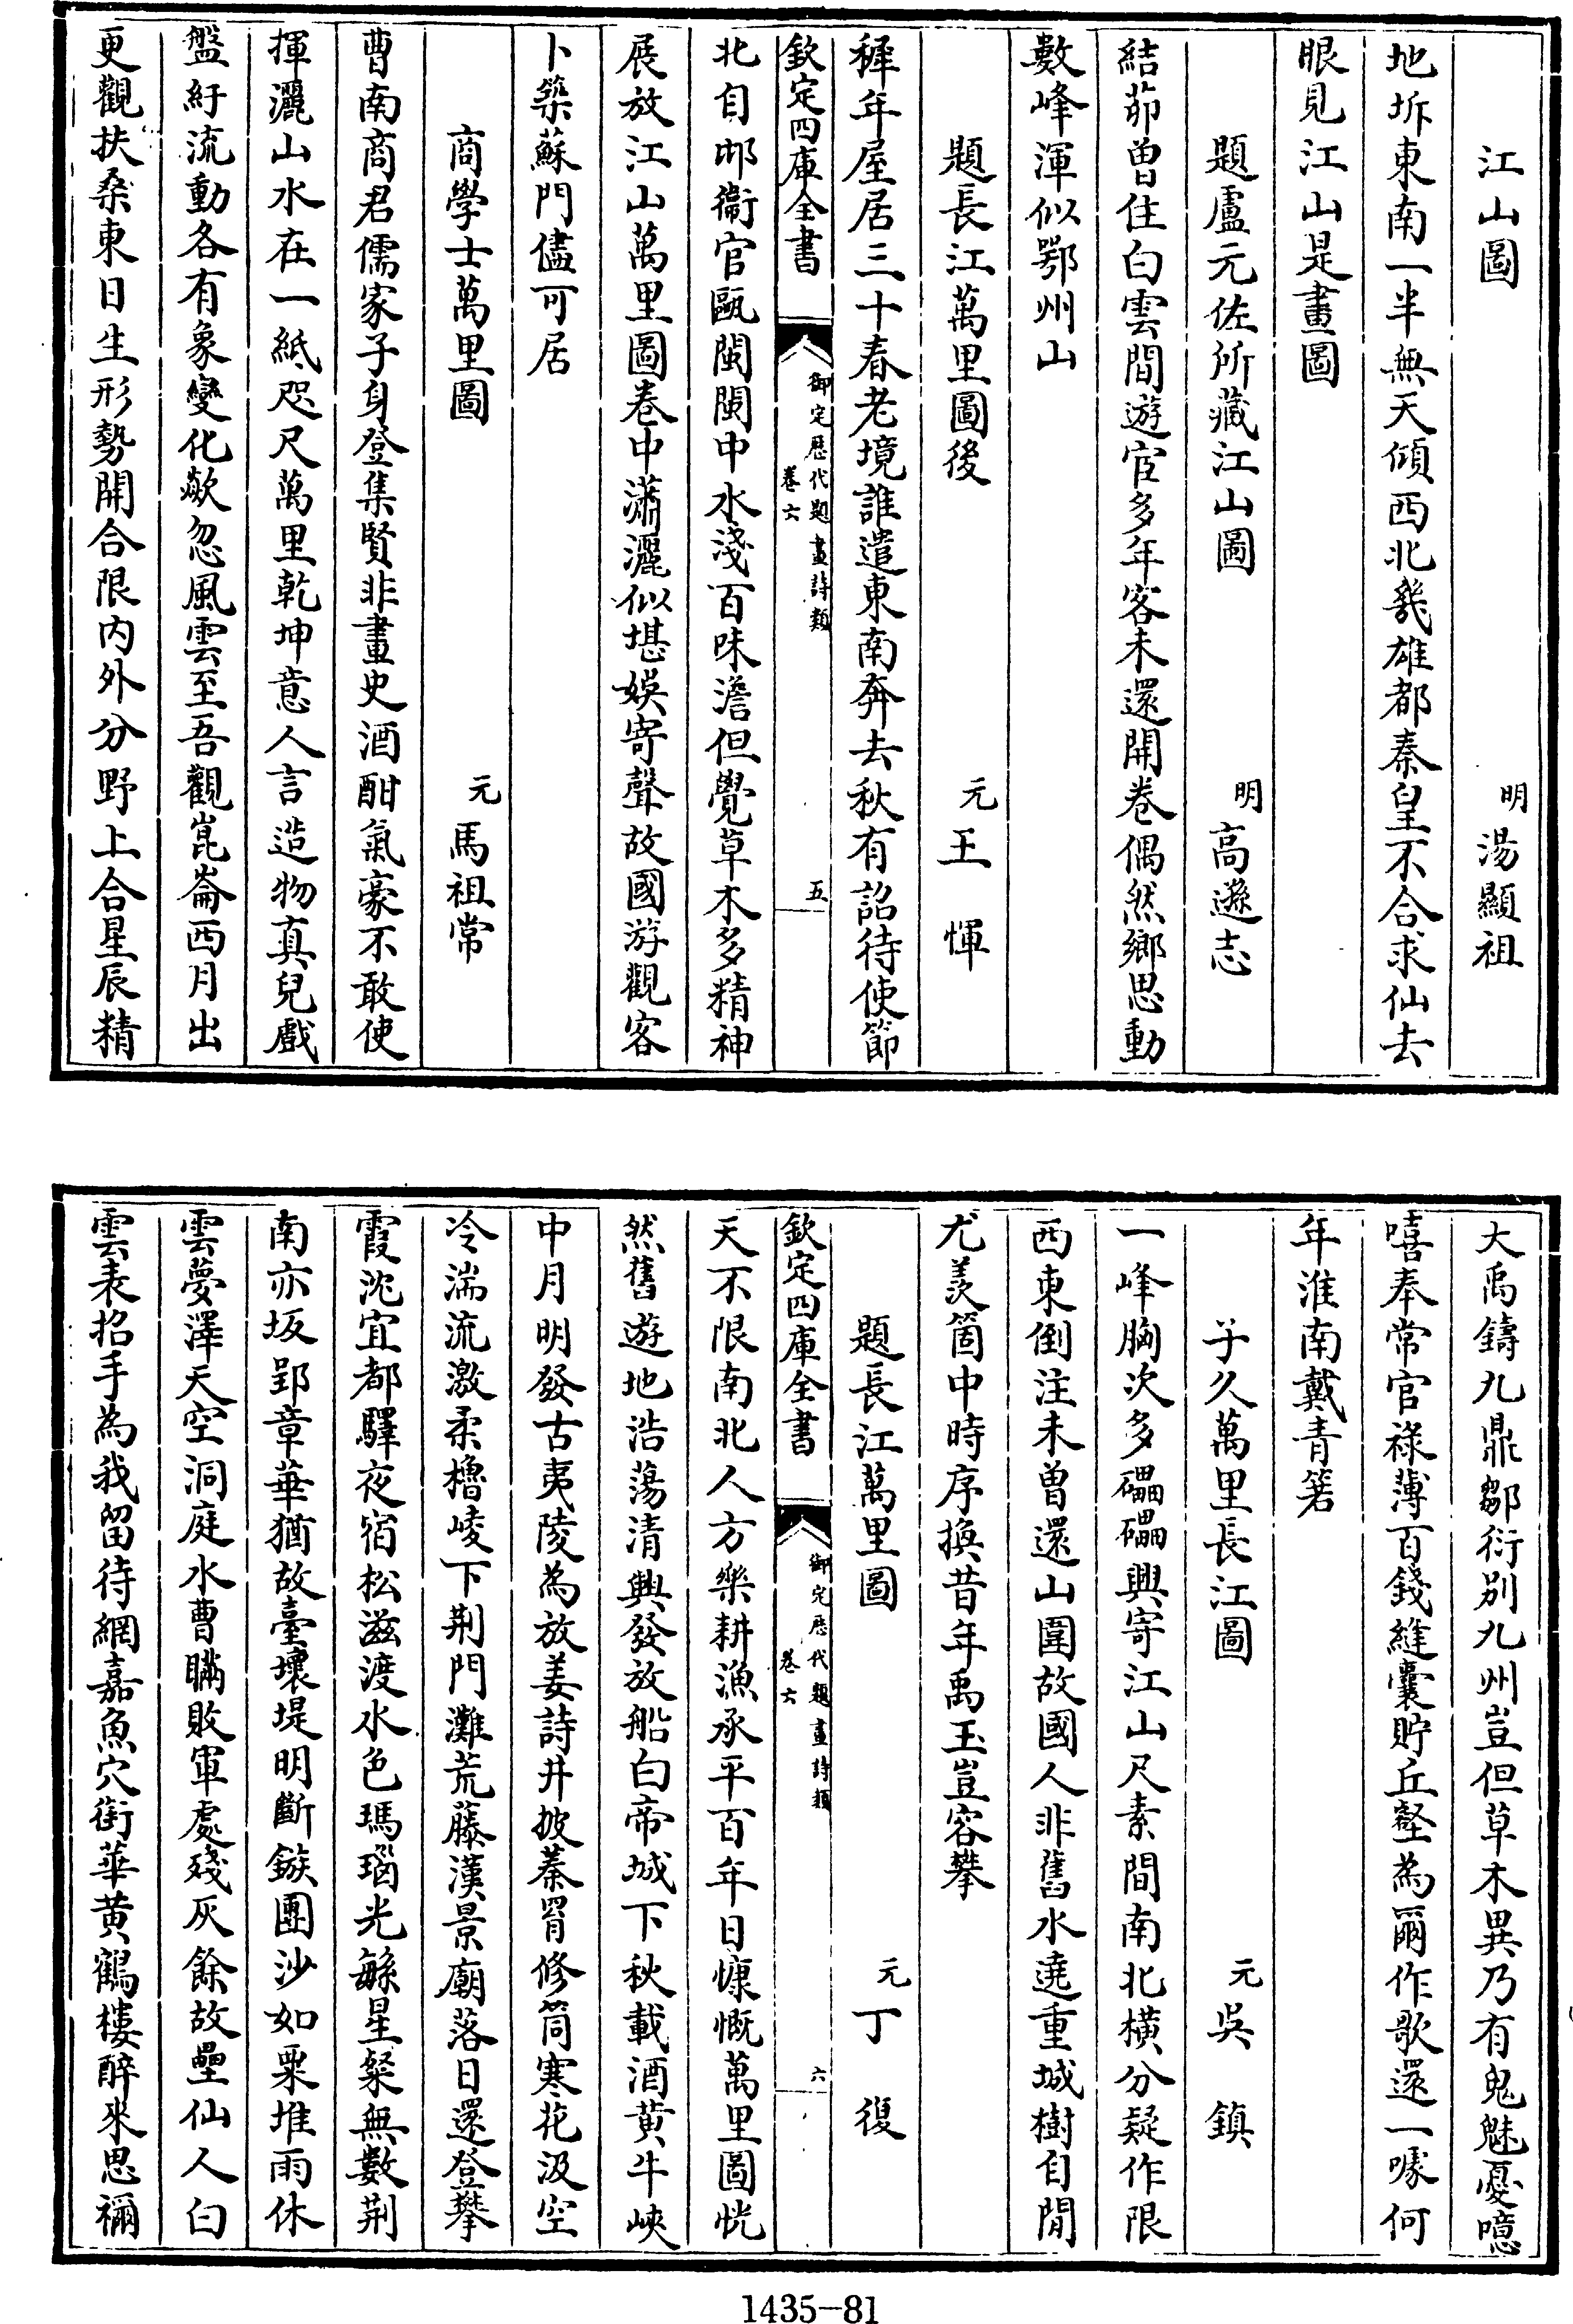 江山圖　明湯顯祖
地坼東南一半無天傾西北幾雄都秦皇不合求仙去
眼見江山是畫圖
題盧元佐所藏江山圖　明高遜志
結茆曽住白雲間遊宦多年客未還開卷偶然鄉思動
數峰渾似鄂州山
題長江萬里圖後　元王惲
穉年屋居三十春老境誰遣東南奔去秋有詔待使節
欽定四庫全書　御定歷代題畫詩類　卷六　五
北自邶衞官甌閩閩中水淺百味澹但覺草木多精神
展放江山萬里圖卷中瀟灑似堪娛寄聲故國游觀客
卜築蘇門儘可居
商學士萬里圖　元馬祖常
曹南商君儒家子身登集賢非畫史酒酣氣豪不敢使
揮灑山水在一紙咫尺萬里乾坤意人言造物真兒戲
盤紆流動各有象變化歘忽風雲至吾觀崑崙西月出
更觀扶桑東日生形勢開合限内外分野上合星辰精
大禹鑄九鼎鄒衍别九州豈但草木異乃有鬼魅憂噫
嘻奉常官祿薄百錢縫囊貯丘壑為爾作歌還一噱何
年淮南戴青箬
子久萬里長江圖　元吳鎮
一峰胸次多礧礧興寄江山尺素間南北橫分疑作限
西東倒注未曽還山圍故國人非舊水遶重城樹自閒
尤羨箇中時序換昔年禹玉豈容攀
題長江萬里圖　元丁復
欽定四庫全書　御定歷代題畫詩類　卷六　六
天不限南北人方樂耕漁承平百年日慷慨萬里圖恍
然舊遊地浩蕩清興發放船白帝城下秋載酒黄牛峽
中月明發古夷陵為放姜詩井披蓁胥修筒寒花汲空
冷湍流激柔櫓崚下荆門灘荒藤漢景廟落日還登攀
霞沈宜都驛夜宿松滋渡水色瑪瑙光繇星粲無數荆
南亦坂郢章華猶故臺壞堤明斷鏃團沙如粟堆雨休
雲夢澤天空洞庭水曹瞞敗軍處殘灰餘故壘仙人白
雲表招手為我留待網嘉魚穴街華黄鶴樓醉來思禰
1435-81